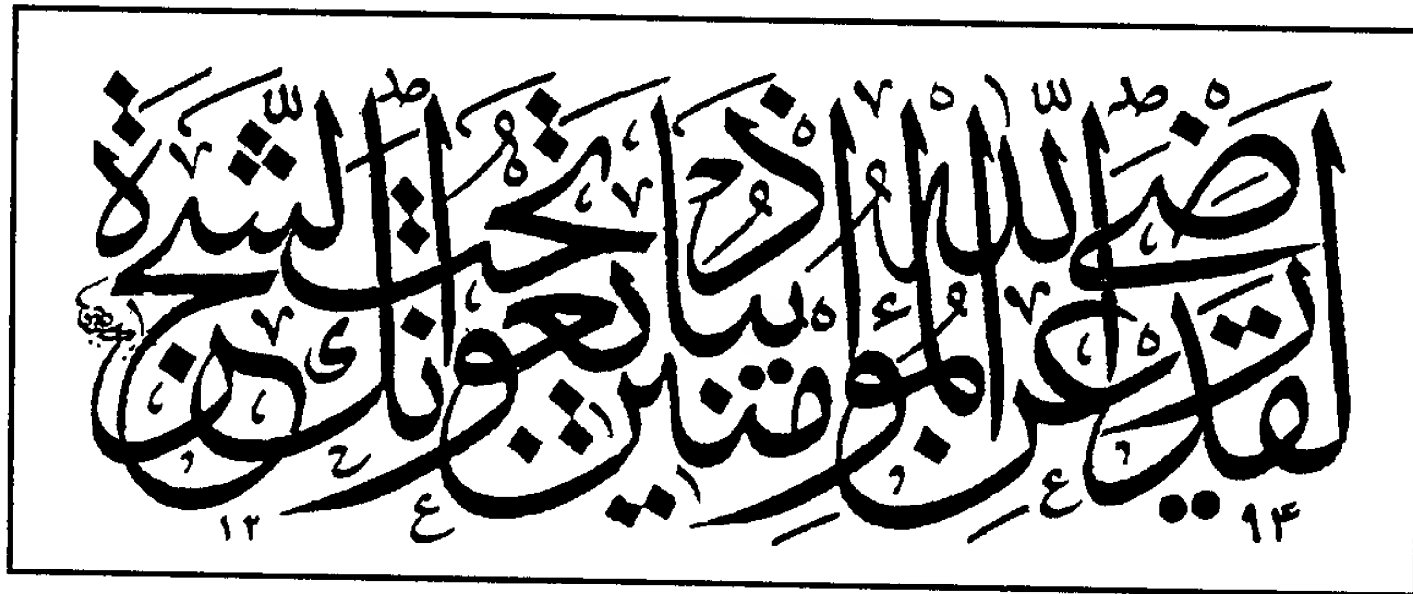 لَقَدْ رَضِيَ اللّٰهُ عَنِ الْمُؤْمِنِينَ إِذْ يُبَايِعُونَكَ تَحْتَ الشَّجَرَةِ
٩۴
١٢